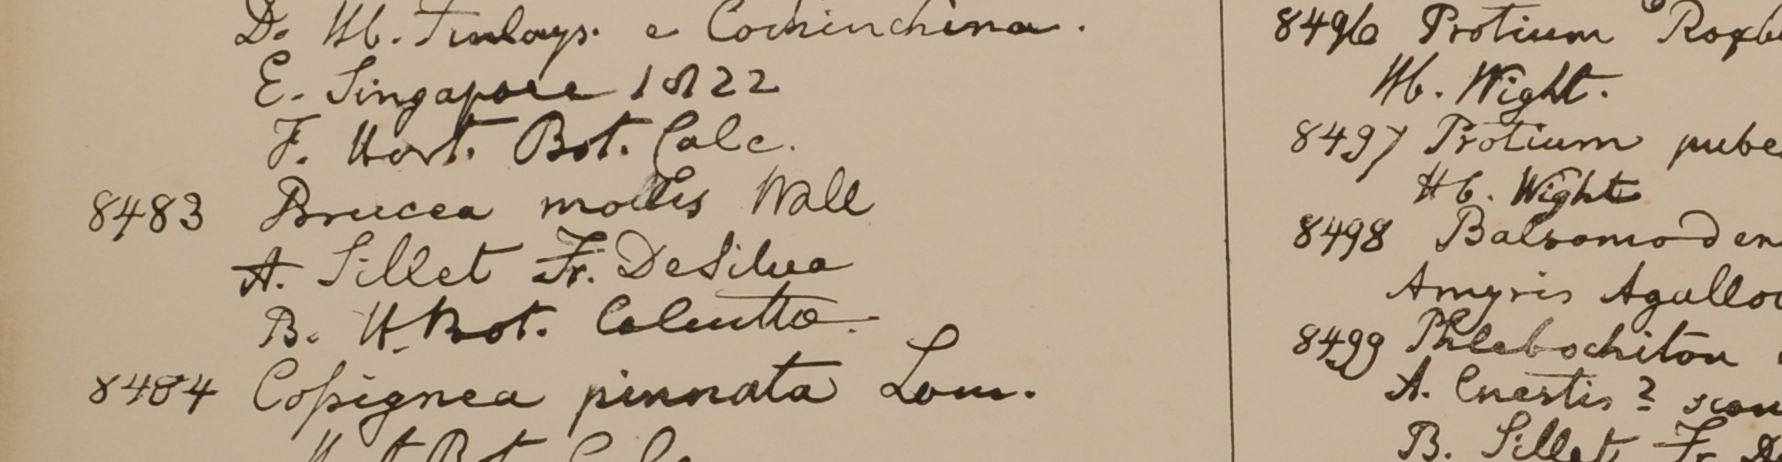 D. Hb. Finlays. e Cochinchina.
E. Singapore 1822
F. Hort. Bot. Calc.
8483 Brucea mollis Wall
A. Sillet Fr. DeSilva
B. H. Bot. Calcutta.
8484 Cossignea pinnata Lour.
8496 Protium Roxb
Hb. Wight.
8497 Protium pube
Hb. Wight
8498 Balsamoden
Amyris Agalloc
8499 Phlebochiton
A. Cnestis? scan
B. Sillet Fr. D